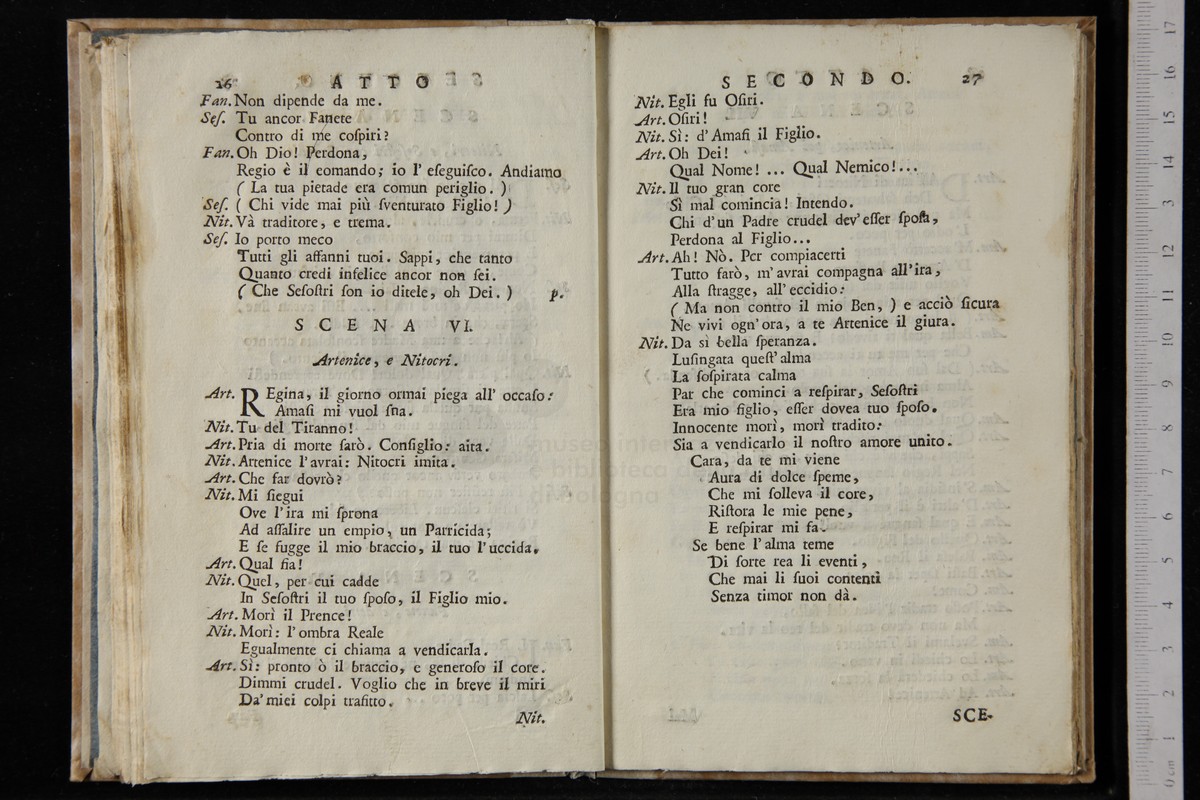 26 ATTO
Fan. Non dipende da me.
Seſ. Tu ancor Fanete
Contro di me coſpiri?
Fan. Oh Dio! Perdona,
Regio è il comando; io l' eſeguiſco. Andiamo
( La tua pietade era comun periglio. )
Seſ. ( Chi vide mai più ſventurato Figlio! )
Nit. Và traditore, e trema.
Seſ. Io porto meco
Tutti gli affanni tuoi. Sappi, che tanto
Quanto credi infelice ancor non ſei.
( Che Seſoſtri ſon io ditele, oh Dei. ) p.
SCENA VI.
Artenice, e Nitocri.
Art. REgina, il giorno ormai piega all' occaſo:
Amaſi mi vuol ſna.
Nit. Tu del Tiranno!
Art. Pria di morte ſarò. Conſiglio: aita.
Nit. Artenice l'avrai: Nitocri imita.
Art. Che far dovrò?
Nit. Mi ſiegui
Ove l'ira mi ſprona
Ad aſſalire un empio, un Parricida;
E ſe fugge il mio braccio, il tuo l'uccida.
Art. Qual fia!
Nit. Quel, per cui cadde
In Seſoſtri il tuo ſpoſo, il Figlio mio.
Art. Morì il Prence!
Nit. Morì: l'ombra Reale
Egualmente ci chiama a vendicarla.
Art. Sì: pronto ò il braccio, e generoſo il core.
Dimmi crudel. Voglio che in breve il miri
Da'miei colpi trafitto.
Nit.
SECONDO. 27
Nit. Egli fu Oſiri.
Art. Oſiri!
Nit. Sì: d'Amaſi il Figlio.
Art. Oh Dei!
Qual Nome! ... Qual Nemico!...
Nit. Il tuo gran core
Sì mal comincia! Intendo.
Chi d'un Padre crudel dev'eſſer ſpoſa,
Perdona al Figlio...
Art. Ah! Nò. Per compiacerti
Tutto farò, m'avrai compagna all'ira,
Alla ſtragge, all'eccidio:
( Ma non contro il mio Ben, ) e acciò ſicura
Ne vivi ogn'ora, a te Artenice il giura.
Nit. Da sì bella ſperanza.
Luſingata queſt'alma
La ſoſpirata calma
Par che cominci a reſpirar, Seſoſtri
Era mio figlio, eſſer dovea tuo ſpoſo.
Innocente morì, morì tradito:
Sia a vendicarlo il noſtro amore unito.
Cara, da te mi viene
Aura di dolce ſpeme,
Che mi ſolleva il core,
Riſtora le mie pene,
E reſpirar mi fa.
Se bene l'alma teme
Di ſorte rea li eventi,
Che mai li ſuoi contenti
Senza timor non dà.
SCE-
museo inter
e biblioteca
di bologna
0 cm 1 2 3 4 5 6 7 8 9 10 11 12 13 14 15 16 17